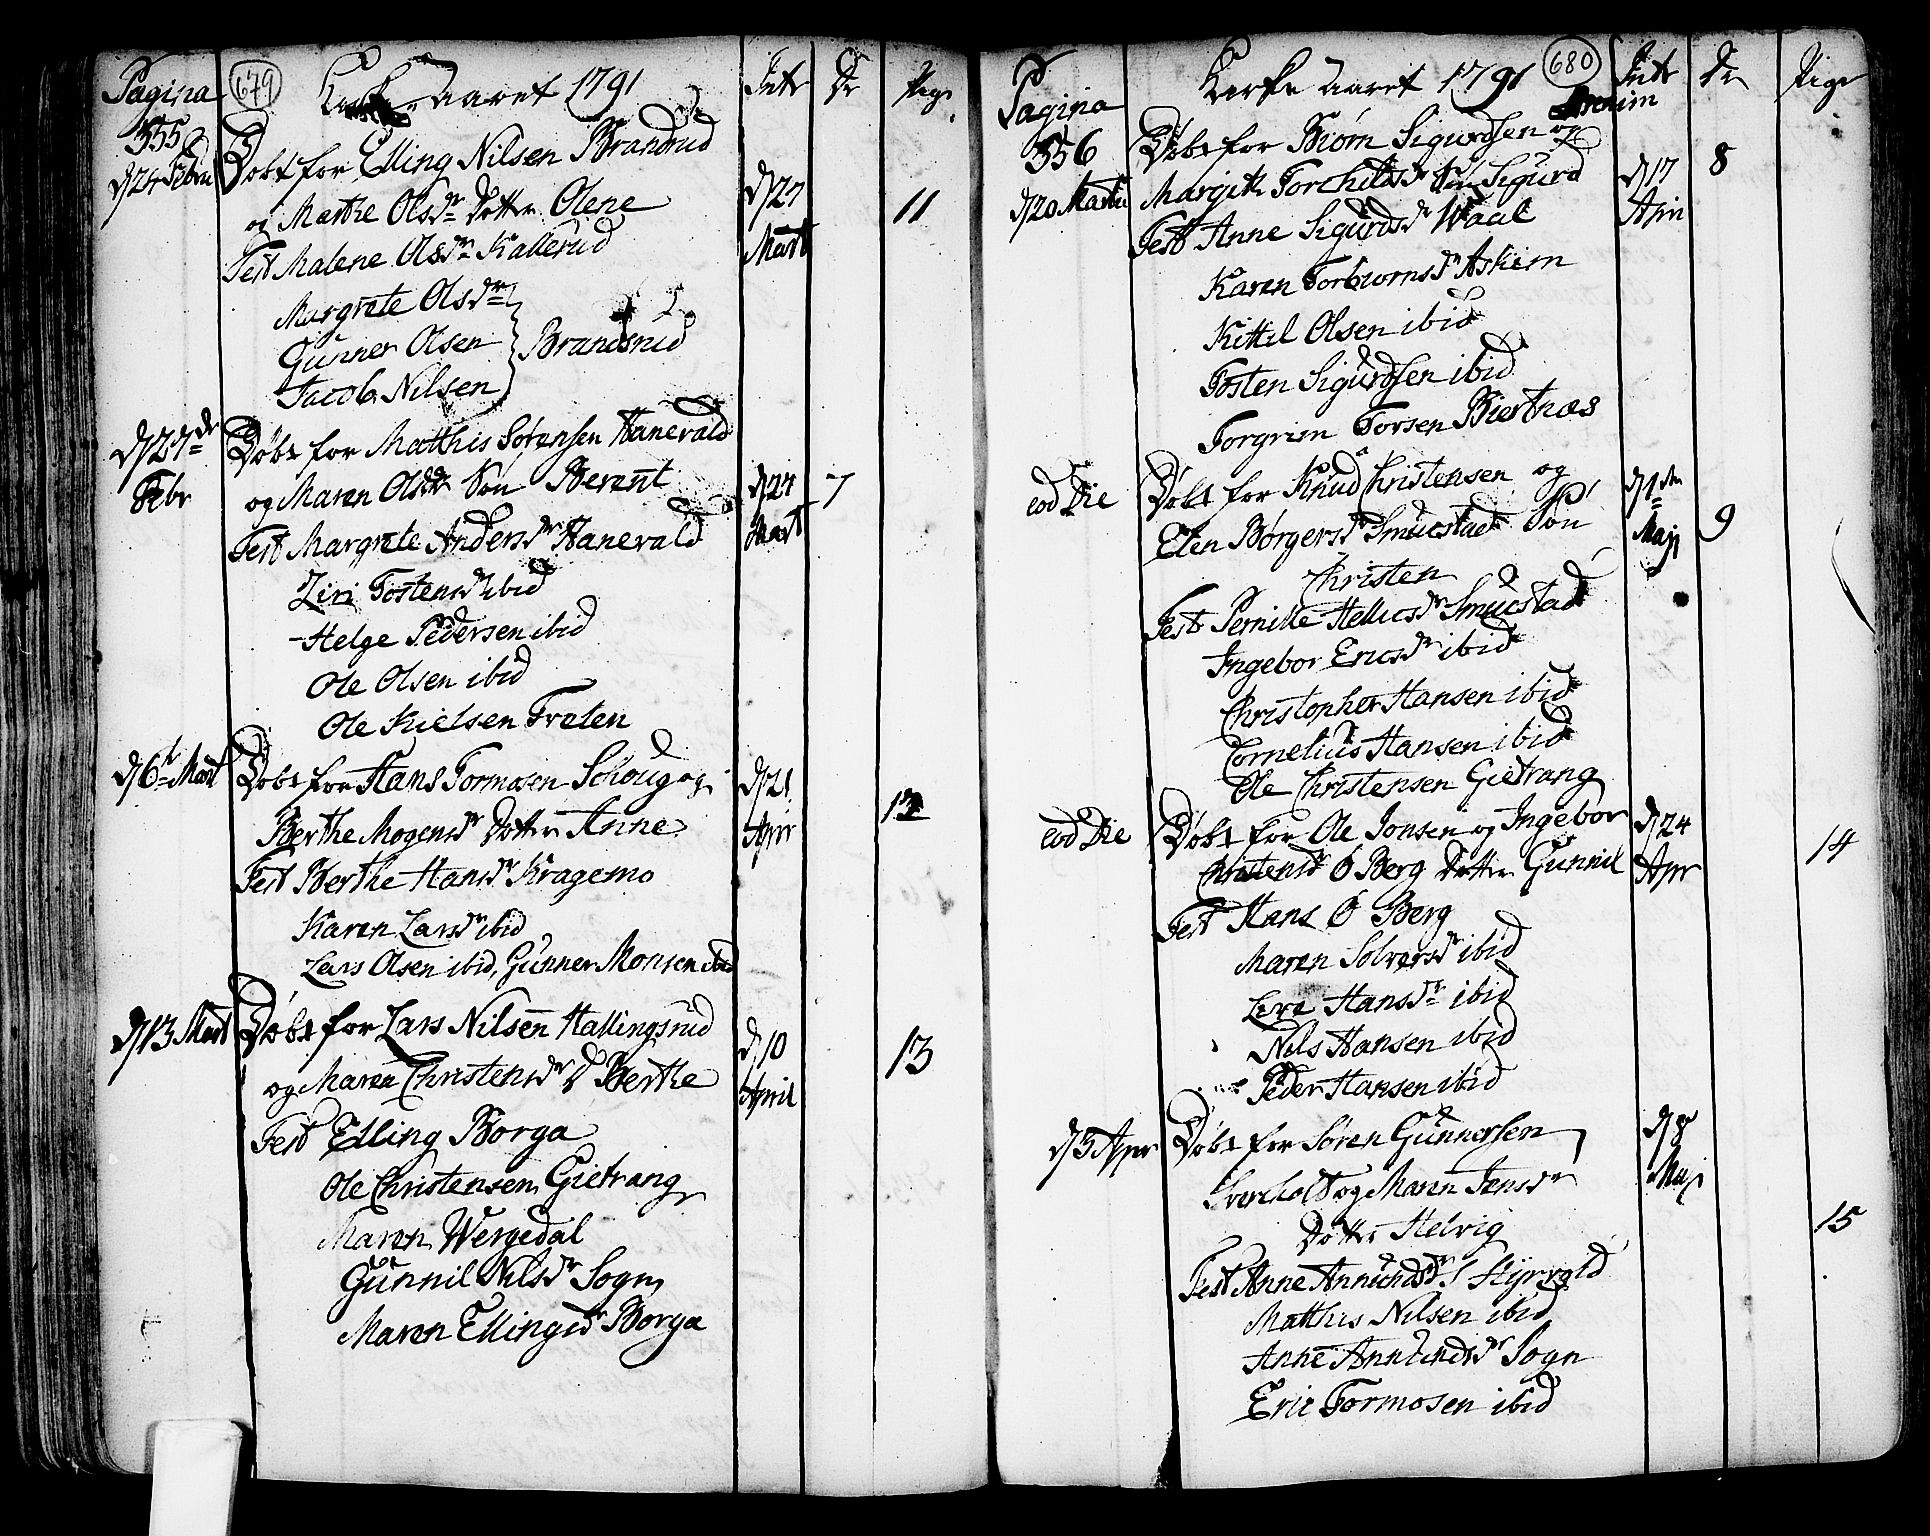 Pagina 679 Kirke Aaret 1791 Intr Dr Pige
355
d 24 Febru Døbt for Elling Nilsen Brandrud
og Marthe Olsdr Dotter Olene d 27 Mart 11
Test Malene Olsdr Kallerud
Margrete Olsdr
Gunner Olsen Brandsrud
Jacob Nilsen
d 27de Febr Døbt for Matthis Sørensen Hanevald
og Maren Olsdr Søn Berent d 24 Mart 7
Test Margrete Andersdr Hanevald
Ziri Tostensdr ibid
Helge Pedersen ibid
Ole Olsen ibid
Ole Kielsen Træten
d 6te Mart Døbt for Hans Tormosen Schoug og d 21 Apr
Berthe Mogensdr Dotter Anne 12
Test Berthe Hansdr Kragemo
Karen Larsdr ibid
Lars Olsen ibid, Gunner Monsen ibid
d 13 Mart Døbt for Lars Nilsen Hallingsrud d 10 April
og Maren Christensdr D Berthe 13
Test Elling Borga
Ole Christensen Gietrang
Maren Wergedal
Gunnil Nilsdr Sogn
Maren Ellingsdr Borga
Pagina Kerke aaret 1791 680 Intr Dr Pige
356 Døbt for Biørn Sigurdsen og
d 20 Martii Margith Torchildsdr Søn Sigurd d 17 Apr 8
Test Anne Sigurdsdr Waal
Karen Torbiornsdr Askiem
Kittil Olsen ibid
Tosten Sigurdsen ibid
Torgrim Torsen Biertnæs
eod Die Døbt for Knud Christensen og d 1ste Maji
Elen Børgersdr Smucstad Søn 9
Christen
Test Pernille Hellicsdr Smucstad
Ingebor Ericsdr ibid
Christopher Hansen ibid
Cornelius Hansen ibid
Ole Christensen Gietrang
eod Die Døbt for Ole Jonsen og Ingebor d 24 Apr
Christensdr Ø Berg Dotter Gunnil 14
Test Hans Ø Berg
Maren Solversdr ibid
Hansdr ibid
Nils Hansen ibid
Peder Hansen ibid
d 3 Apr Døbt for Søren Gunnersen d 8 Maji
og Maren Jensdr
Dotter Helvig 15
Test Anne Annundsdr Styrvold
Matthis Nilsen ibid
Anne Annundsdr Sogn
Eric Tormosen ibid